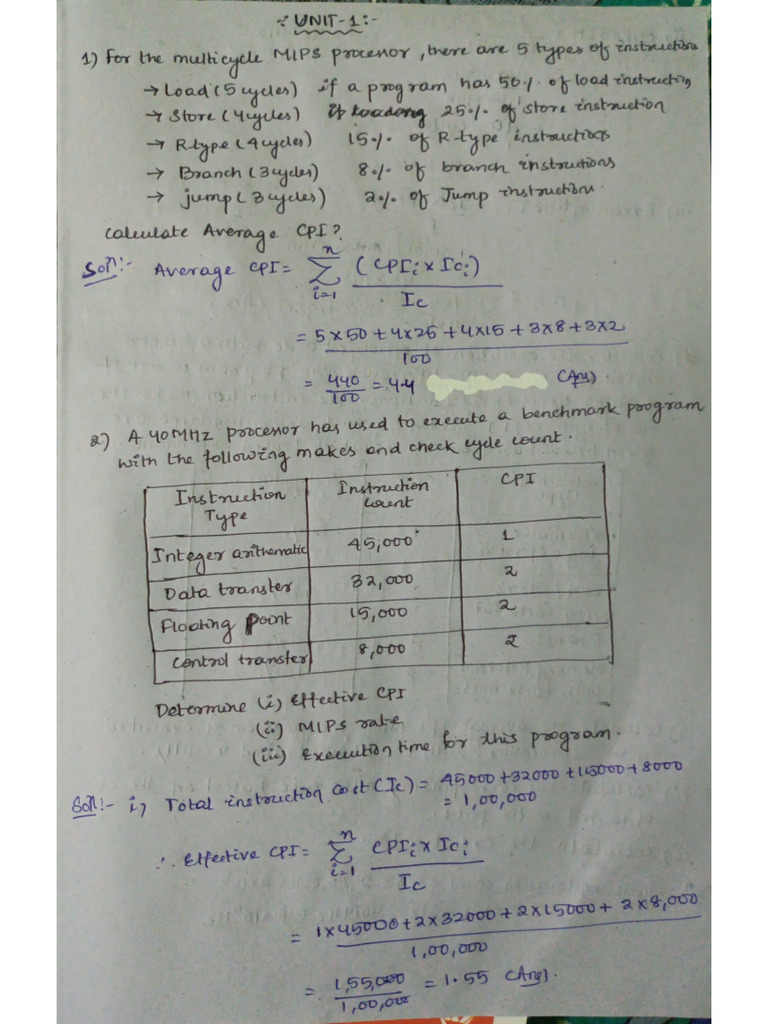 ∻ UNIT-1:-
1) For the multicycle MIPS processor, there are 5 types of instructions
→ Load (5 cycles) if a program has 50% of load instructing
→ Store (4 cycles) 25% of store instruction
→ R-type (4 cycles) 15% of R-type instructions
→ Branch (3 cycles) 8% of branch instructions
→ jump (3 cycles) 2% of Jump instructions.
Calculate Average CPI?
Soln:- Average CPI = n∑i=1 (CPIi × Ici) / Ic
= 5×50 + 4×25 + 4×15 + 3×8 + 3×2 / 100
= 440/100 = 4.4 (Ans).
2) A 40MHz processor has used to execute a benchmark program
with the following makes and check cycle count.
Instruction Type Instruction Count CPI
Integer arithematic 45,000 1
Data transfer 32,000 2
Floating Point 15,000 2
Control transfer 8,000 2
Determine (i) Effective CPI
(ii) MIPS rate
(iii) Execution time for this program.
Soln:- i) Total instruction cost (Ic) = 45000+32000+115000+8000
= 1,00,000
∴ Effective CPI = n∑i=1 CPIi × Ici / Ic
= 1×45000 + 2×32000 + 2×15000 + 2×8,000 / 1,00,000
= 1,55,000 / 1,00,000 = 1.55 (Ans).